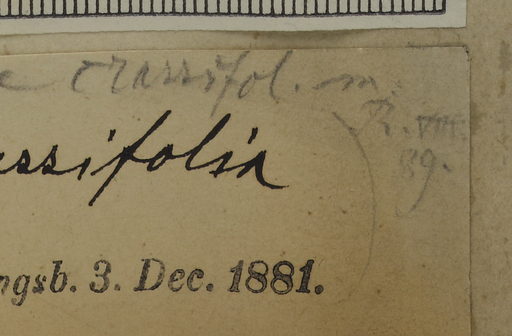 crassifol. m.
R. VIII.
89.
ssifolia
ngsb. 3. Dec. 1881.